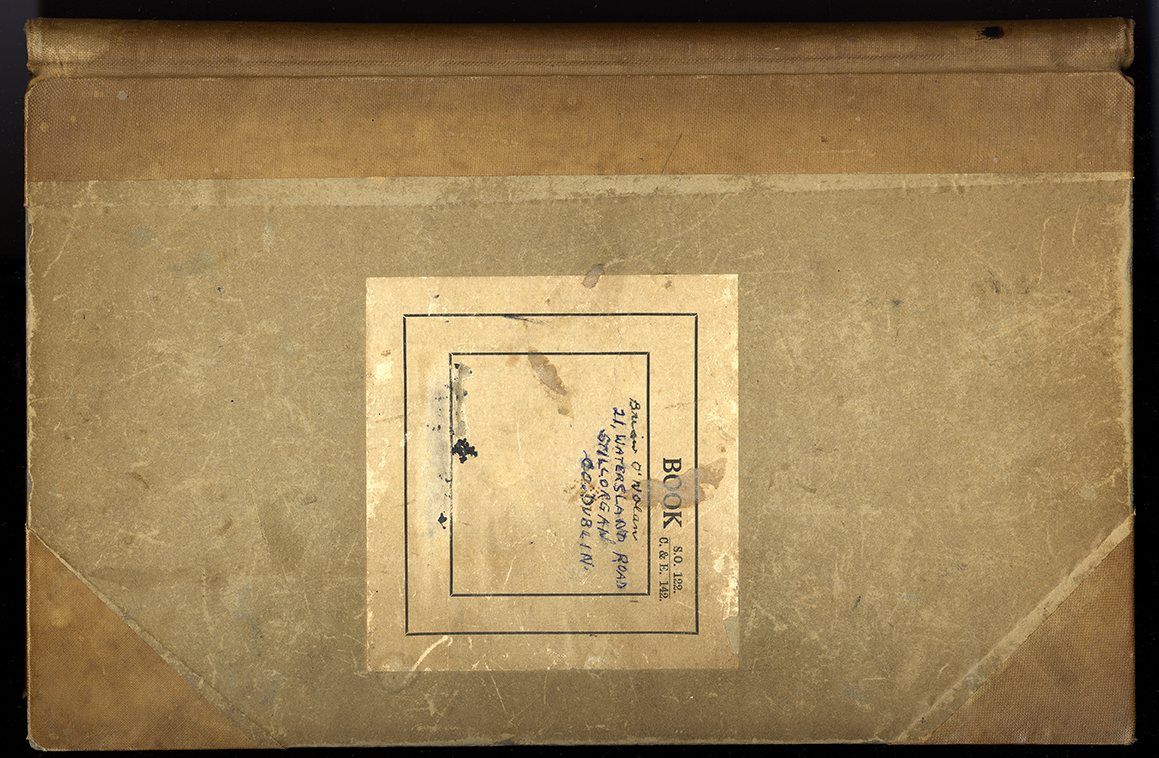 BOOK
S.O. 122.
C. & E. 142.
Brian O'Nolan
21, WATERSLAND ROAD
STILLORGAN
CO. DUBLIN.